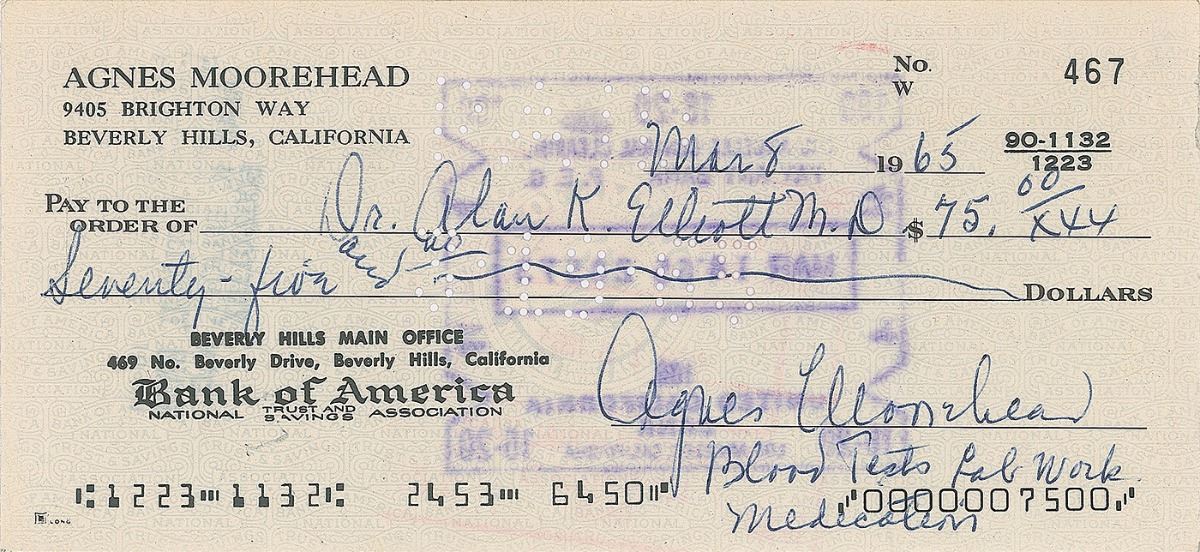 AGNES MOOREHEAD
9405 BRIGHTON WAY
BEVERLY HILLS, CALIFORNIA
No. 467
W
Mar 8 1965
90-1132
1223
PAY TO THE
ORDER OF Dr. Alan K. Elliott M.D. $ 75. 00/x44
Seventy-five and no DOLLARS
BEVERLY HILLS MAIN OFFICE
469 No. Beverly Drive, Beverly Hills, California
Bank of America
NATIONAL TRUST AND SAVINGS ASSOCIATION
Agnes Moorehead
Blood Tests Lab Work
Medication
⑆1223⑉1132⑆ 2453⑉ 6450⑈ ⑈0000007500⑈
LONG